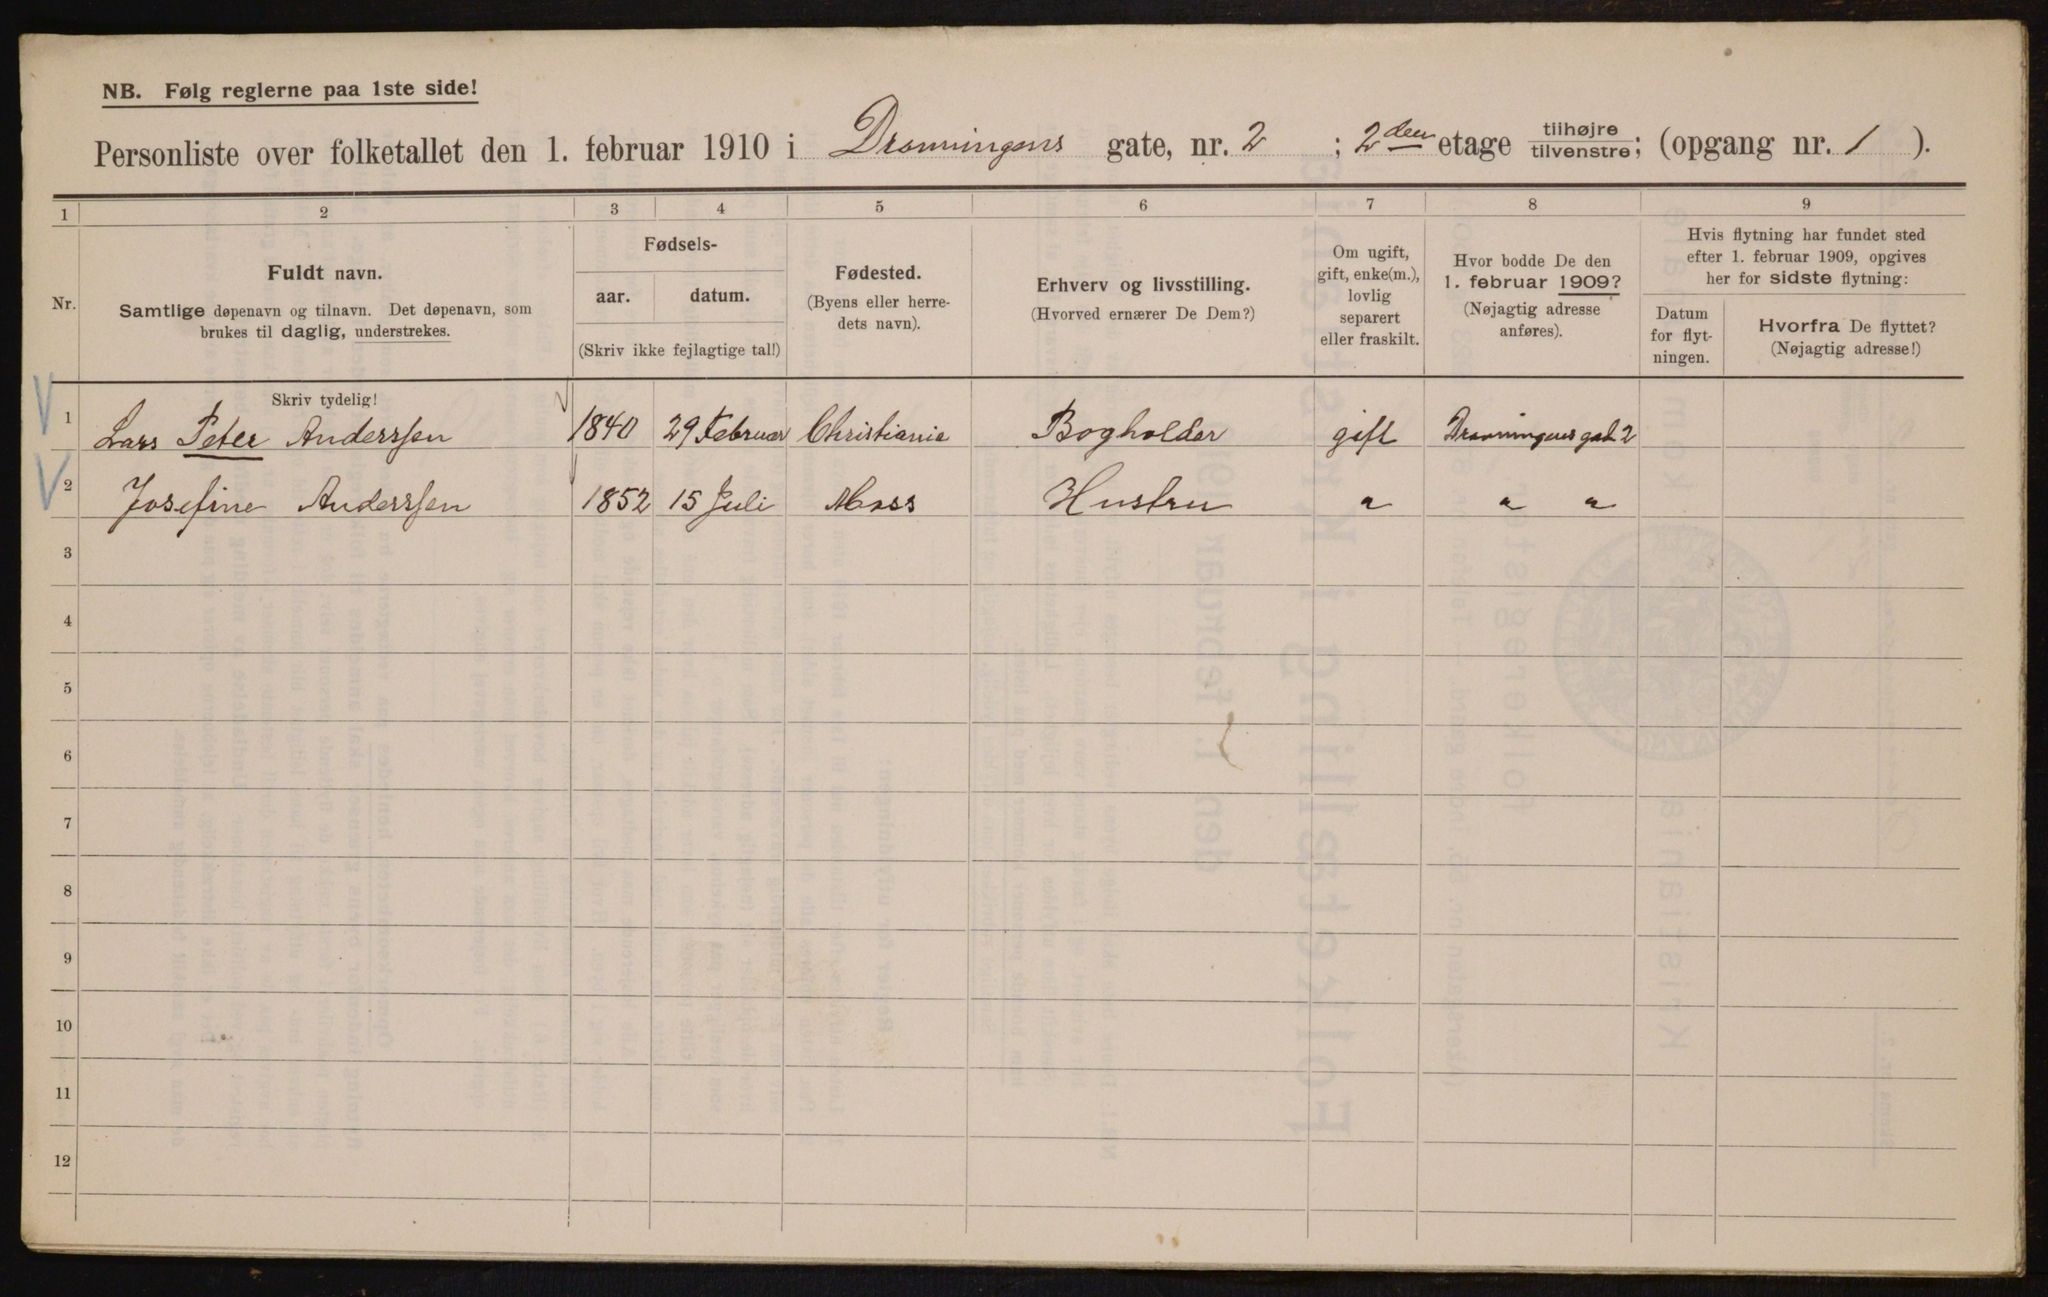 NB. Følg reglerne paa 1ste side!
Personliste over folketallet den 1. februar 1910 i Dronningens gate, nr. 2 ; 2den etage tilhøjre tilvenstre; (opgang nr. 1 ).
1 2 3 4 5 6 7 8 9
Nr.
Fuldt navn.
Samtlige døpenavn og tilnavn. Det døpenavn, som
brukes til daglig, understrekes.
Fødsels-
aar. datum.
(Skriv ikke fejlagtige tal!)
Fødested.
(Byens eller herre-
dets navn).
Erhverv og livsstilling.
(Hvorved ernærer De Dem?)
Om ugift,
gift, enke(m.),
lovlig
separert
eller fraskilt.
Hvor bodde De den
1. februar 1909?
(Nøjagtig adresse
anføres).
Hvis flytning har fundet sted
efter 1. februar 1909, opgives
her for sidste flytning:
Datum
for flyt-
ningen.
Hvorfra De flyttet?
(Nøjagtig adresse!)
Skriv tydelig!
1 Lars Peter Anderssen 1840 29 Februar Christiania Bogholder gift Dronningens gad. 2
2 Josefine Anderssen 1852 15 Juli Moss Hustru " " "
3
4
5
6
7
8
9
10
11
12